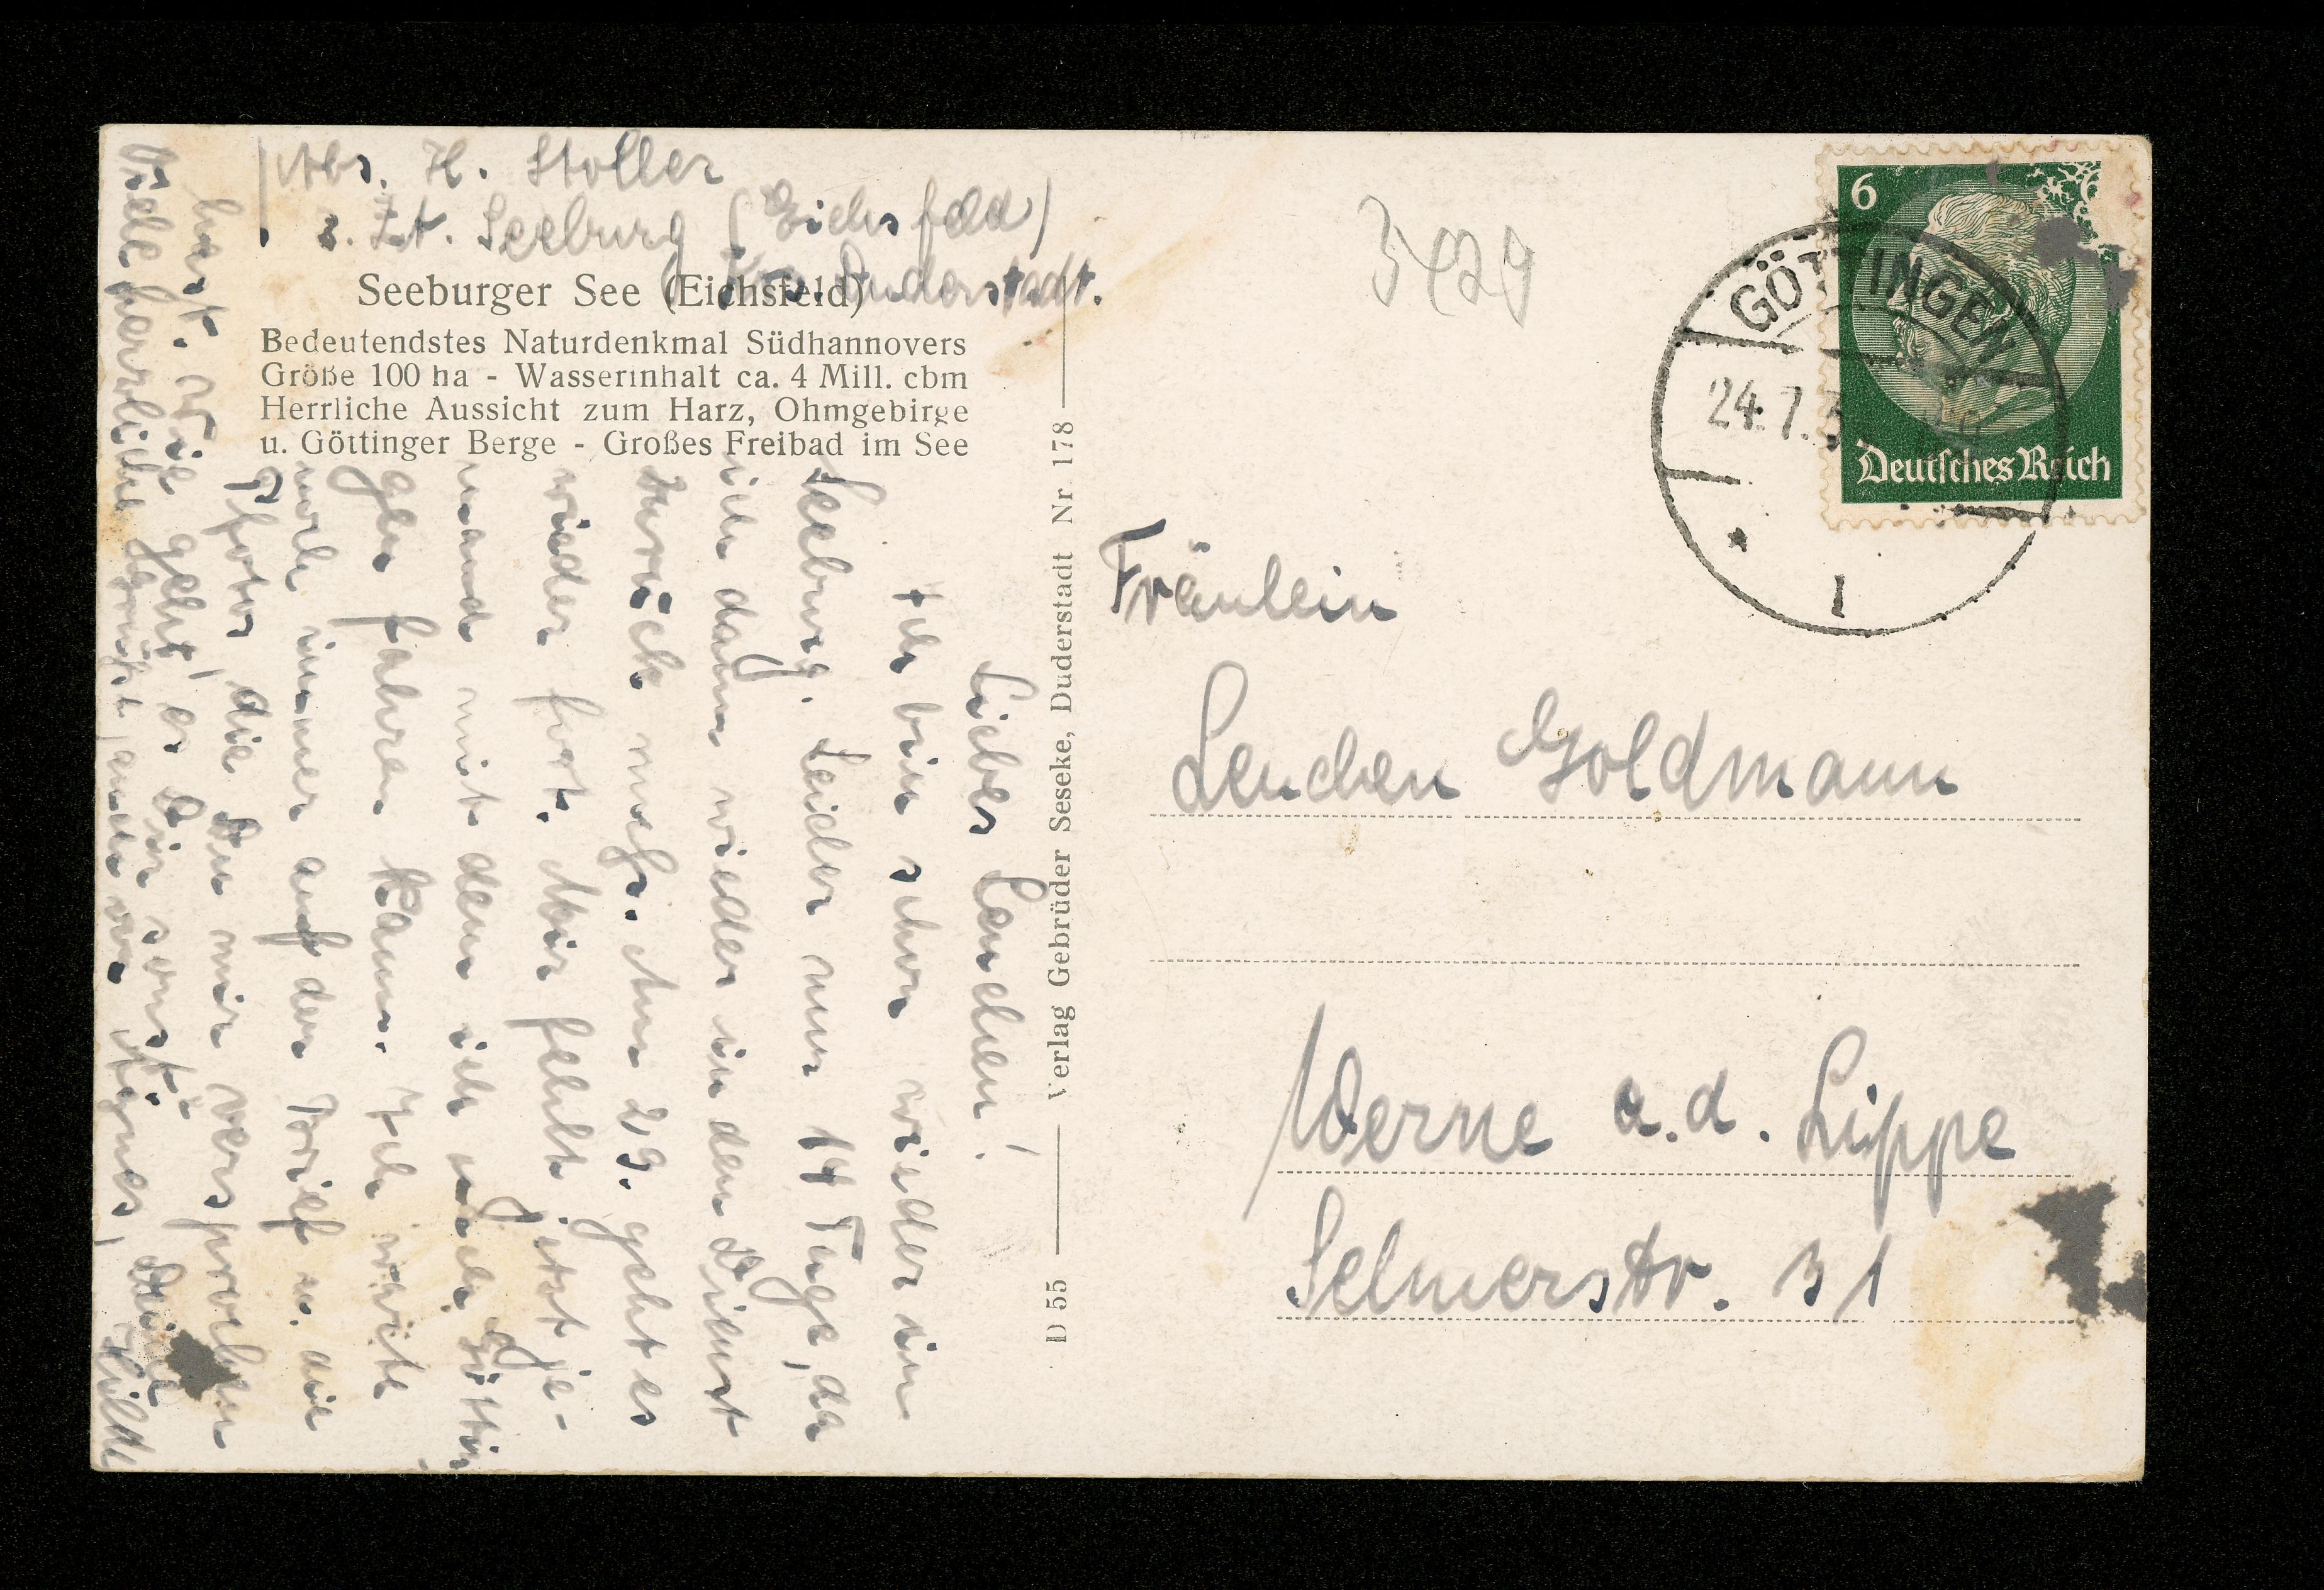 Abs. H. Stoller
z. Zt. Seeburg (Eichsfeld)
Duderstadt.
Seeburger See (Eichsfeld)
Bedeutendstes Naturdenkmal Südhannovers
Größe 100 ha - Wasserinhalt ca. 4 Mill. cbm
Herrliche Aussicht zum Harz, Ohmgebirge
u. Göttinger Berge - Großes Freibad im See
Liebes Lenchen!
Ich bin schon wieder in
Seeburg. Leider nur 14 Tage, da
ich dann wieder in den Dienst
zurück muß. Am 29. geht es
wieder fort. Mir fehlt jetzt je-
mand mit dem ich nach Göttin
gen fahren kann. Ich warte
noch immer auf den Brief u. die
Photos, die Du mir versprochen
hast. Wie geht es Dir sonst?
Viele herzliche Grüße, auch von Agnes, Deine Hilde
Verlag Gebrüder Seseke, Duderstadt Nr 178
D 55
3429
6
Deutsches Reich
GÖTTINGEN
24.7.3
1
Fräulein
Lenchen Goldmann
Werne a.d. Lippe
Selmerstr. 31